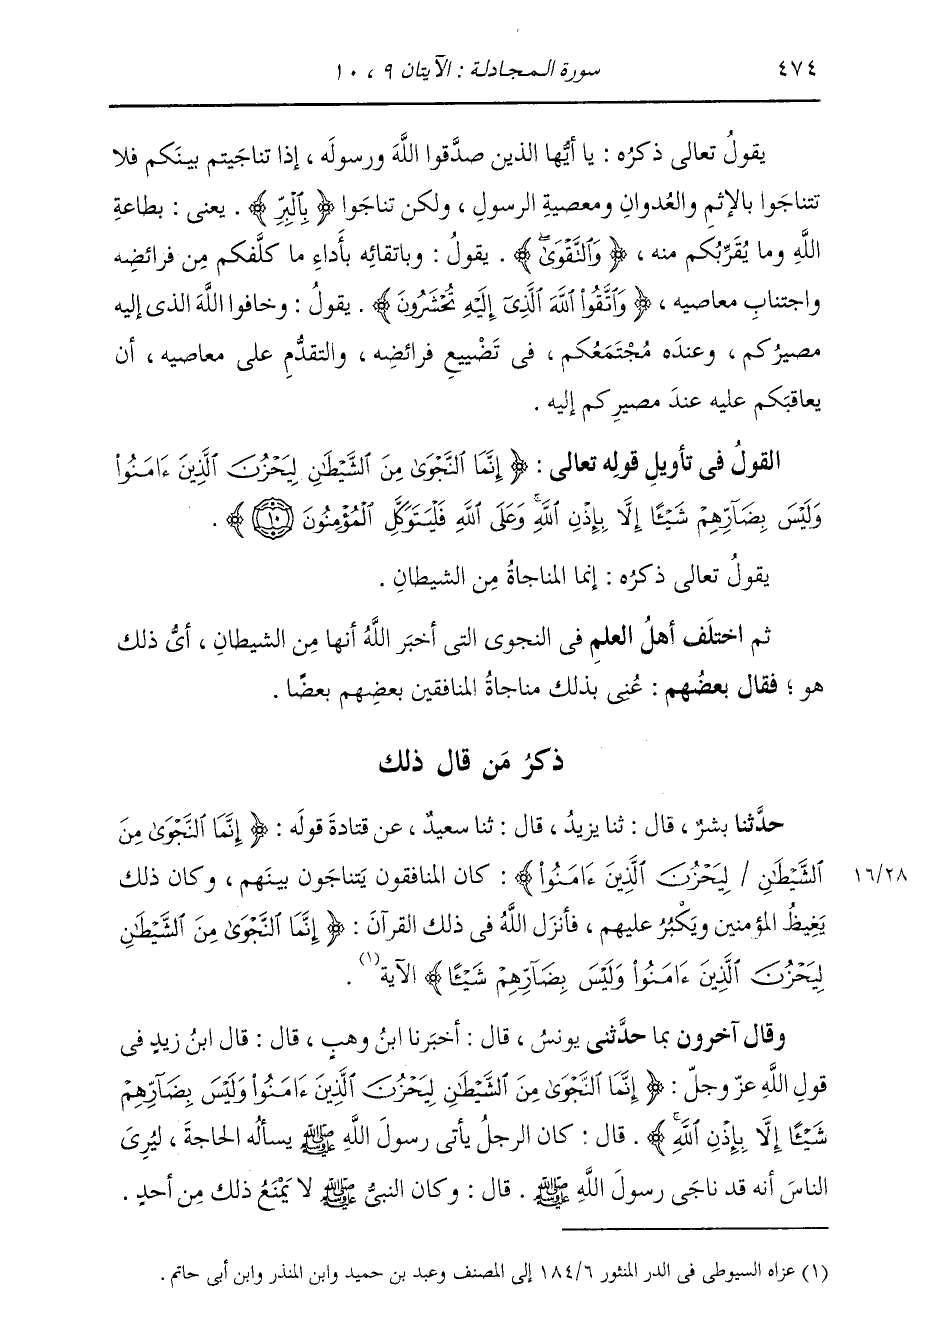 ٤٧٤ سورة المجادلة : الآيتان ٩ ، ١٠
يقولُ تعالى ذكرُه : يا أيُّها الذين صدَّقوا اللَّهَ ورسولَه ، إذا تناجَيتم بينَكم فلا
تتناجَوا بالإثمِ والعُدوانِ ومعصيةِ الرسولِ ، ولكن تناجَوا ﴿ بِٱلْبِرِّ ﴾ . يعنى : بطاعةِ
اللَّهِ وما يُقَرِّبُكم منه ، ﴿ وَٱلنَّقْوَىٰۖ ﴾ . يقولُ : وباتقائِه بأَداءِ ما كلَّفكم مِن فرائضِه
واجتنابِ معاصيه ، ﴿ وَٱتَّقُوا۟ ٱللَّهَ ٱلَّذِىٓ إِلَيْهِ تُحْشَرُونَ ﴾ . يقولُ : وخافوا اللَّهَ الذى إليه
مصيرُكم ، وعندَه مُجْتَمَعُكم ، فى تَضْييعِ فرائضِه ، والتقدُّمِ على معاصيه ، أن
يعاقبَكم عليه عندَ مصيرِكم إليه .
القولُ فى تأويلِ قولِه تعالى : ﴿ إِنَّمَا ٱلنَّجْوَىٰ مِنَ ٱلشَّيْطَٰنِ لِيَحْزُنَ ٱلَّذِينَ ءَامَنُوا۟
وَلَيْسَ بِضَآرِّهِمْ شَيْـًٔا إِلَّا بِإِذْنِ ٱللَّهِۚ وَعَلَى ٱللَّهِ فَلْيَتَوَكَّلِ ٱلْمُؤْمِنُونَ ١٠ ﴾ .
يقولُ تعالى ذكرُه : إنما المناجاةُ مِن الشيطانِ .
ثم اختلَف أهلُ العلمِ فى النجوى التى أخبَر اللَّهُ أنها مِن الشيطانِ ، أىُّ ذلك
هو ؛ فقال بعضُهم : عُنِى بذلك مناجاةُ المنافقين بعضِهم بعضًا .
ذكرُ مَن قال ذلك
حدَّثنا بشرٌ ، قال : ثنا يزيدُ ، قال : ثنا سعيدٌ ، عن قتادةَ قولَه : ﴿ إِنَّمَا ٱلنَّجْوَىٰ مِنَ
١٦/٢٨ ٱلشَّيْطَٰنِ / لِيَحْزُنَ ٱلَّذِينَ ءَامَنُوا۟ ﴾ : كان المنافقون يَتناجَون بينَهم ، وكان ذلك
يَغِيظُ المؤمنين ويَكْبُرُ عليهم ، فأنزَل اللَّهُ فى ذلك القرآنَ : ﴿ إِنَّمَا ٱلنَّجْوَىٰ مِنَ ٱلشَّيْطَٰنِ
لِيَحْزُنَ ٱلَّذِينَ ءَامَنُوا۟ وَلَيْسَ بِضَآرِّهِمْ شَيْـًٔا ﴾ الآية (١) .
وقال آخرون بما حدَّثنى يونسُ ، قال : أخبَرنا ابنُ وهبٍ ، قال : قال ابنُ زيدٍ فى
قولِ اللَّهِ عزّ وجلّ : ﴿ إِنَّمَا ٱلنَّجْوَىٰ مِنَ ٱلشَّيْطَٰنِ لِيَحْزُنَ ٱلَّذِينَ ءَامَنُوا۟ وَلَيْسَ بِضَآرِّهِمْ
شَيْـًٔا إِلَّا بِإِذْنِ ٱللَّهِۚ ﴾ . قال : كان الرجلُ يأتى رسولَ اللَّهِ ﷺ يسألُه الحاجةَ ، ليُرِىَ
الناسَ أنه قد ناجَى رسولَ اللَّهِ ﷺ . قال : وكان النبىُّ ﷺ لا يَمْنَعُ ذلك مِن أحدٍ .
(١) عزاه السيوطى فى الدر المنثور ١٨٤/٦ إلى المصنف وعبد بن حميد وابن المنذر وابن أبى حاتم .